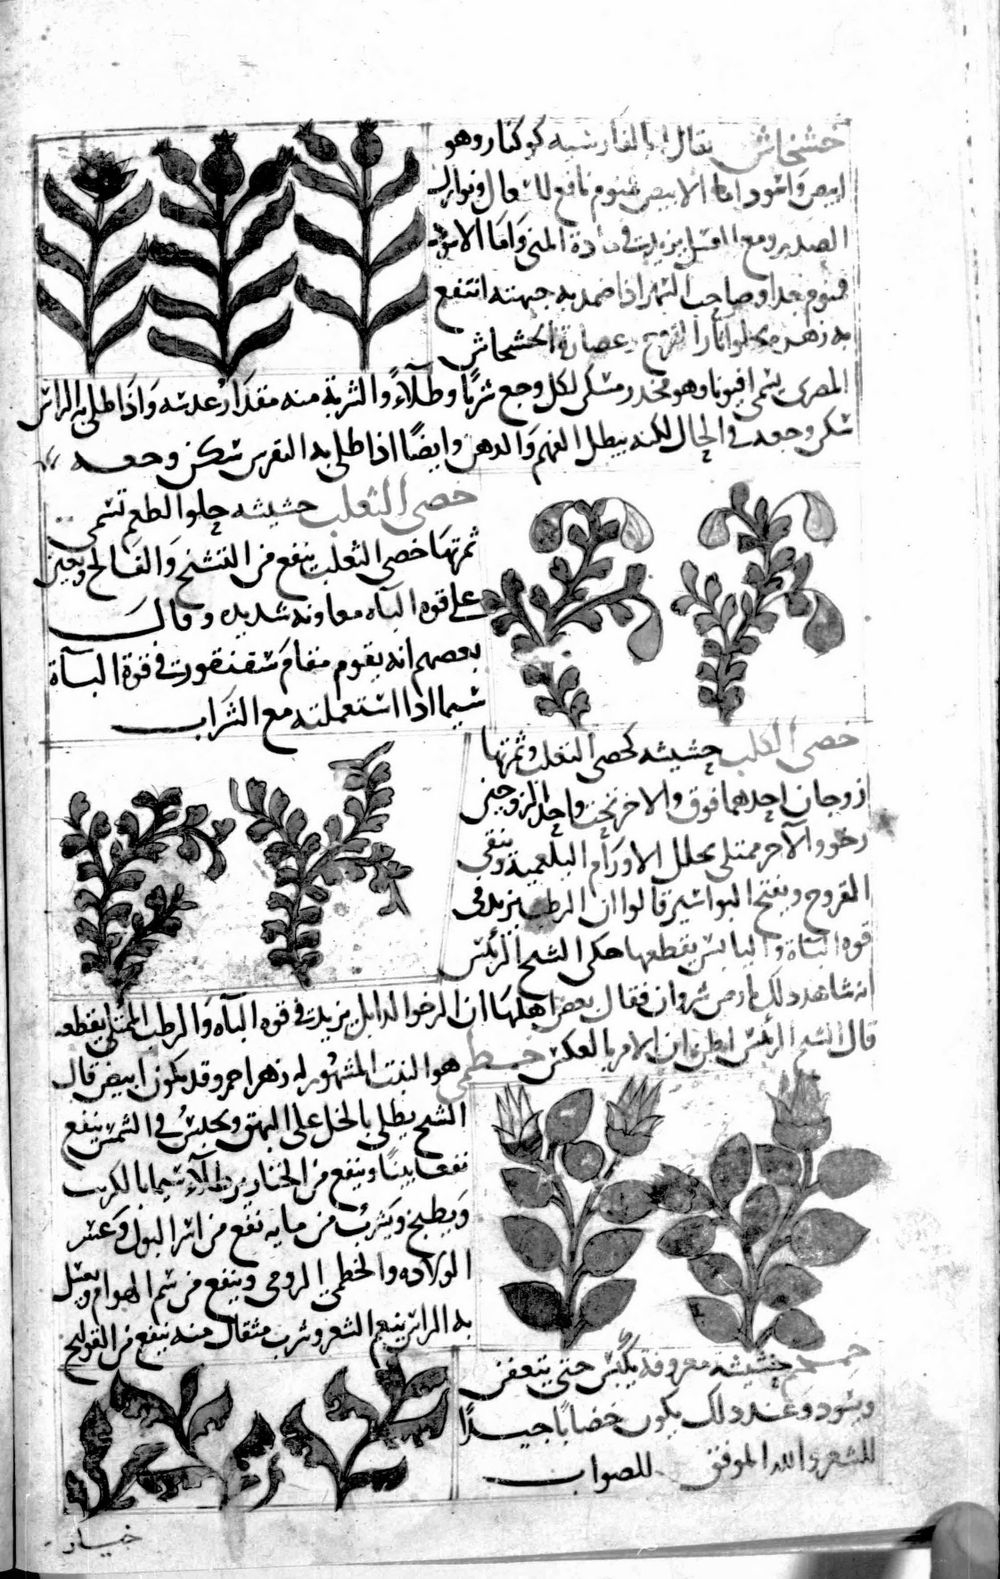 خشخاش يقال له بالفارسية كوكنار وهو
ابيض واسود اما الابيض فمنوم نافع للسعال ونوازل
الصدر ومع العسل يزيد في مادة المني واما الاسود
فمنوم جدا وصاحب السهر اذا ضمد به جبهته انتفع
به زهره يجلو اثار القروح وعصارة الخشخاش
المصرى يسمى افيونا وهو مخدر مسكن لكل وجع شربا وطلآءً والشربة منه مقدار عدسه واذا طلى به الراس
سكن وجعه في الحال لكنه يبطل الفهم والذهن وايضًا اذا طلى به النقرس سكن وجعه
خصى الثعلب حشيشه حلو الطعم تسمى
ثمرتها خصى الثعلب ينفع من التشنج والفالج ويعين
على قوة البآه معاونه شديده وقال
بعضهم انه يقوم مقام سقنقور في قوة البآة
سيما اذا استعملته مع الشراب
خصى الكلب حشيشه كخصى الثعلب وثمرتها
زوجان احدهما فوق والاخر تحت واحد الزوجين
رخو والآخر ممتلى يحلل الاورام البلغمية وينقي
القروح ويفتح البواسير قالوا ان الرطب يزيد فى
قوه الباة واليابس يقطعها حكى الشيخ الرئيس
انه شاهد ذلك بارض شروان فقال بعض اهلها ان الرخو الذابل يزيد في قوه البآه والرطب الممتلى يقطعه
قال الشيخ الرئيس اظن ان الامر بالعكس خطمي
هو النبت المشهور له زهر احمر وقد يكون ابيض قال
الشيخ يطلى بالخل على البهق ويجلس في الشمس ينفع
نفعا بينًا وينفع من الخنازير طلآء سيما بالكرنب
ويطبخ ويشرب من مايه نفع من اسر البول وعسر
الولاده والخطمي الرومى وينفع من سم الهوام ويغسل
به الراس ينعم الشعر وشرب مثقال منه ينفع من القولنج
حشيشه معروفة يكبس حتى يتعفن
ويسود وعند ذلك يكون خضابا جيدًا
للشعر والله الموفق للصواب
خيار